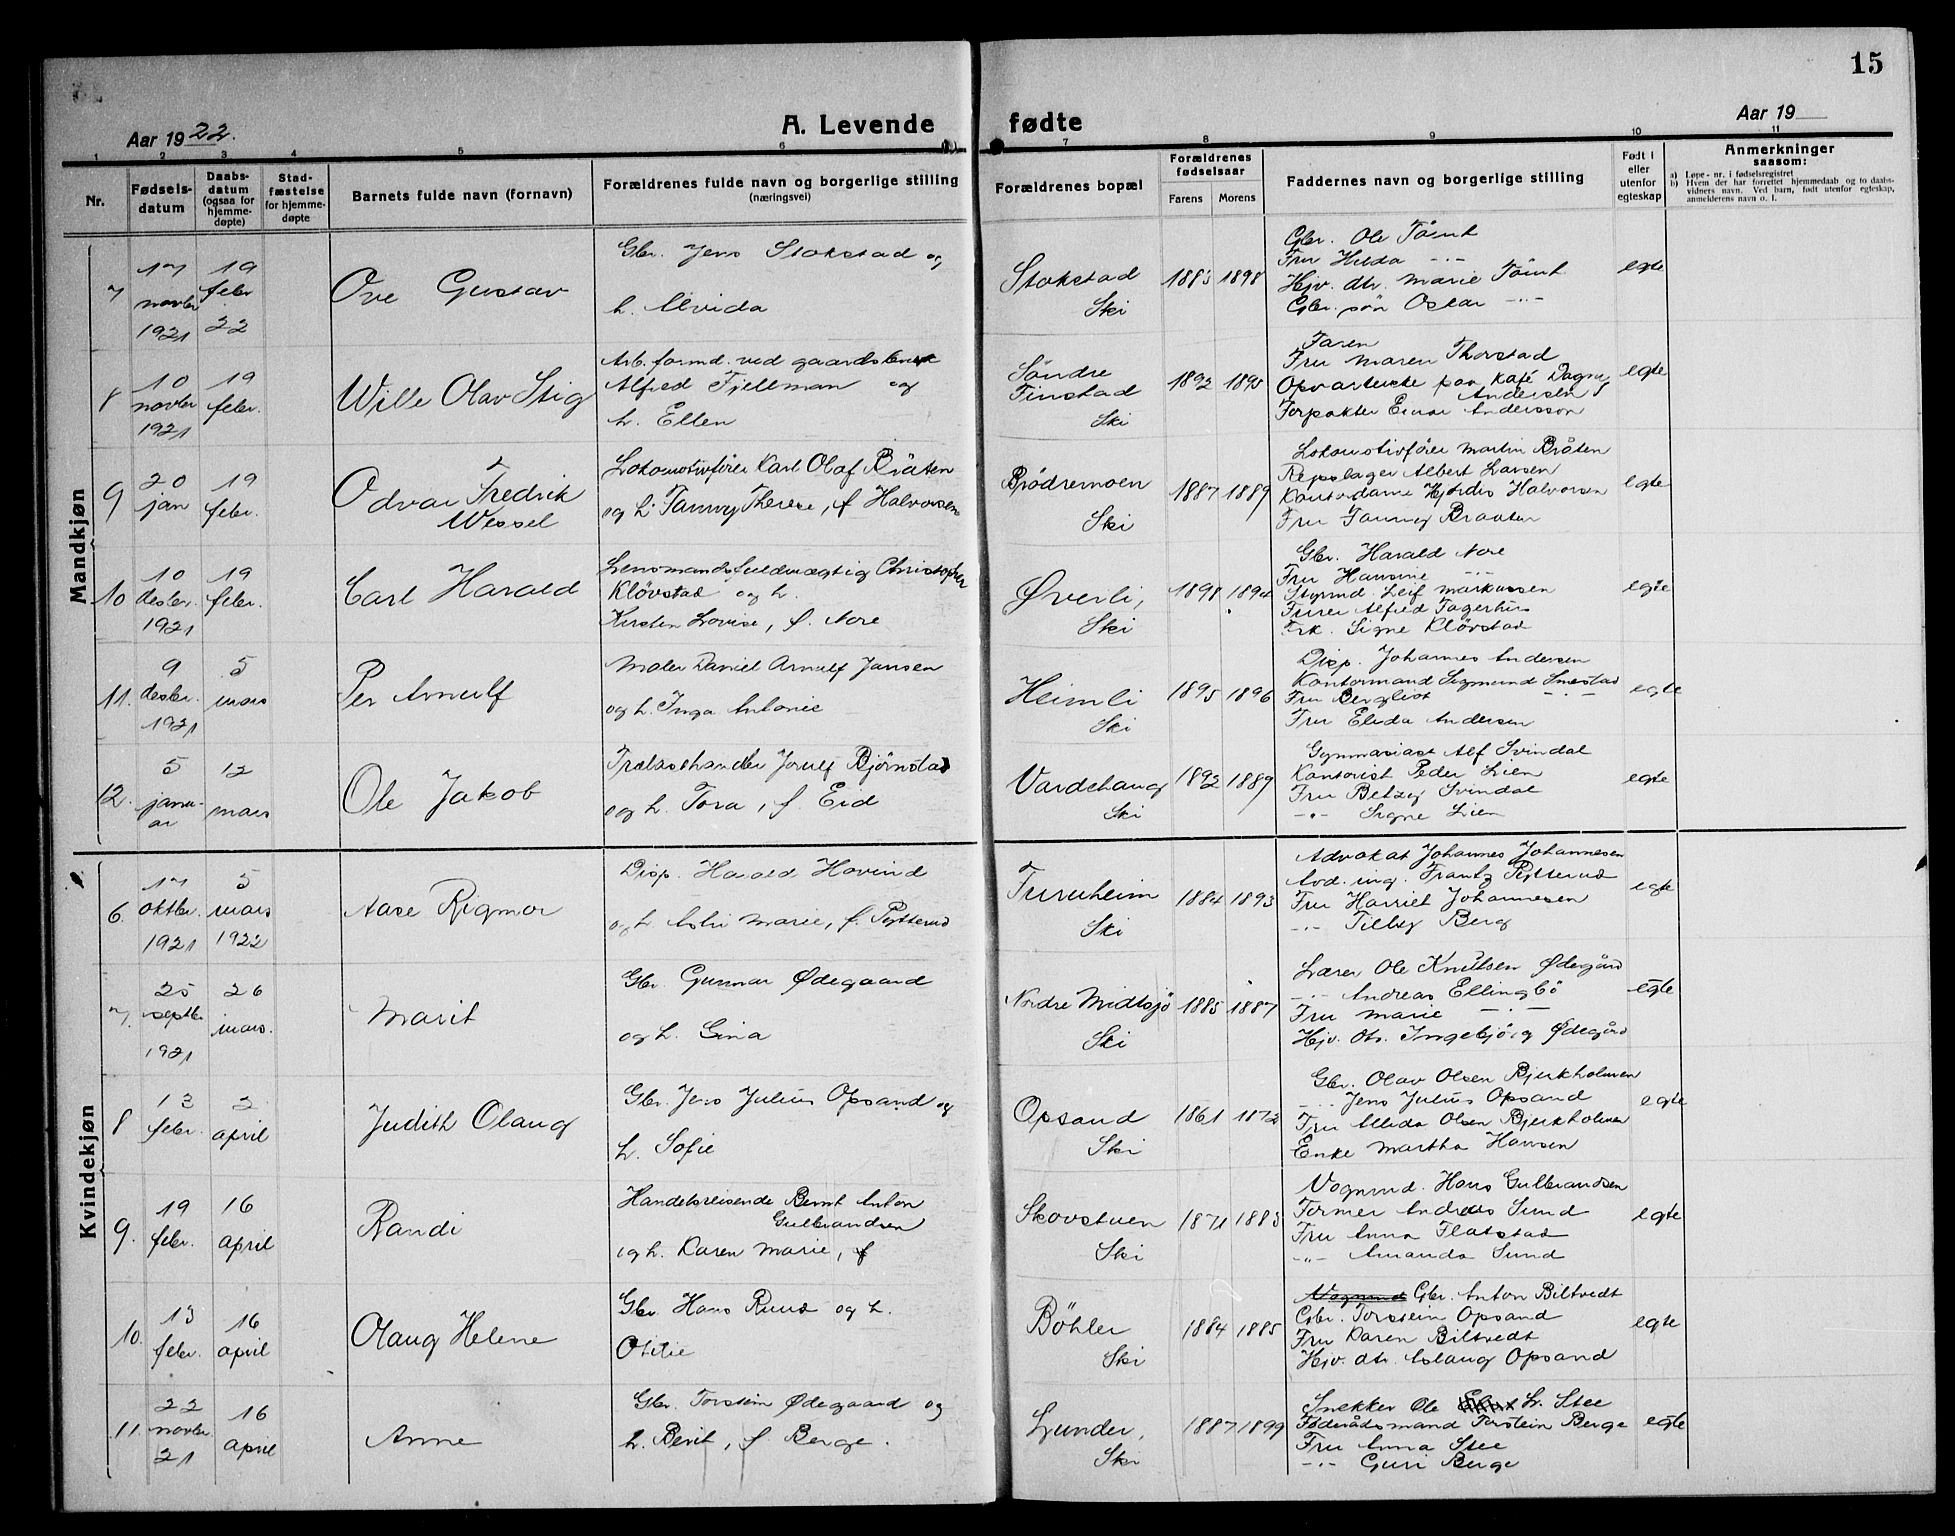 15
Aar 1922.
A. Levende fødte
Aar 19
1 2 3 4 5 6 7 8 9 10 11
Nr.
Fødsels-
datum
Daabs-
datum
(ogsaa for
hjemme-
døpte)
Stad-
fæstelse
for hjemme-
døpte
Barnets fulde navn (fornavn)
Forældrenes fulde navn og borgerlige stilling
(næringsvei)
Forældrenes bopæl
Forældrenes
fødselsaar
Farens Morens
Faddernes navn og borgerlige stilling
Født i
eller
utenfor
egteskap
Anmerkninger
saasom:
a) Løpe-nr. i fødselsregistret
b) Hvem der har forrettet hjemmedaab og to daabs-
vidners navn. Ved barn, født utenfor egteskap,
anmelderens navn o. l.
Mandkjøn
7
17
novbr
1921
19
febr
22
Ove Gustav
Gbr. Jens Stokstad og
h. Alvida
Stokstad
Ski
1883 1898
Gbr. Ole Tömt
Fru Hilda -"-
Hjv. dtr. Marie Tömt
Gbr. sön Oskar -"-
egte
8
10
novbr
1921
19
febr.
Wille Olav Stig
Arb. formd. ved gaardsbruk
Alfred Fjellman og
h. Ellen
Söndre
Finstad
Ski
1892 1895
Faren
Fru Maren Thorstad
Opvarterske paa Kafé Dagny
Andersen
Forpakter Einar Andersson
egte
9
20
jan
19
febr.
Odvar Fredrik
Wessel
Lokomotivfører Karl Olaf Bråten
og h. Fanny Therese, f. Halvorsen
Brödremoen
Ski
1887 1889
Lokomotivförer Martin Bråten
Repslager Albert Larsen
Kontordame Hjördis Halvorsen
Fru Fanny Braaten
egte
10
10
desbr.
1921
19
febr.
Carl Harald
Lensmandsfuldmægtig Christopher
Kløvstad og h.
Kirsten Lovise, f. Nore
Øverli,
Ski
1898 1894
Gbr. Harald Nore
Fru Hansine -"-
Styrmd. Leif Markussen
Furer Alfred Fagerhus
Frk. Signe Kløvstad
egte
11.
9
desbr.
1921
5
mars
Per Arnulf
Maler Daniel Arnulf Jansen
og h. Inga Antonie
Heimli
Ski
1895 1896
Disp. Johannes Andersen
Kontormand Sigmund Smestad
Fru Bergliot -"-
Fru Elida Andersen
egte
12.
5
janu-
ar
12
mars
Ole Jakob
Trælasthandler Jorulf Bjørnstad
og h. Tora, f. Eid
Vardehaug
Ski
1892 1889
Gymnasiast Alf Svindal
Kontorist Peder Lien
Fru Betzy Svindal
-"- Signe Lien
egte
Kvindekjøn
6.
17
oktbr.
1921
5
mars
1922
Aase Rigmor
Disp. Harald Hovind
og h. Asbi Marie, f. Rytterud
Furuheim
Ski
1884 1893
Advokat Johannes Johannesen
Avd. ing. Frantz Rytterud
Fru Harriet Johannesen
-"- Tilly Berg
egte
7.
25
septbr
1921
26
mars.
Marit
Gbr. Gunnar Ødegaard
og h. Gina
Nordre Midtsjö
Ski
1885 1887
Lærer Ole Knutsen Ødegård
-"- Andreas Ellingbö
Fru Marie -"-
Hjv. dtr. Ingebjörg Ødegård
egte
8
13
febr.
2
april
Judith Olaug
Gbr. Jens Julius Opsand og
h. Sofie
Opsand
Ski
1861 1872
Gbr. Olav Olsen Bjerkholmen
-"- Jens Julius Opsand
Fru Alida Olsen Bjerkholmen
Enke Martha Hansen
egte
9.
19
febr.
16
april
Randi
Handelsreisende Bernt Anton
Gulbrandsen
og h. Karen Marie, f
Skovstuen
Ski
1871 1883
Vognmd. Hans Gulbrandsen
Former Andreas Sund
Fru Anna Flatstad
-"- Amanda Sund
egte
10.
13
febr.
16
april
Olaug Helene
Gbr. Hans Ruud og h.
Otilie
Böhler
Ski
1884 1885
Vognmd Gbr. Anton Biltvedt
Gbr. Torstein Opsand
Fru Karen Biltvedt
Hjv. dtr. Aslaug Opsand
egte
11.
22
novbr
21
16
april
Anne
Gbr. Torstein Ødegaard og
h. Berit, f. Berge.
Lunder,
Ski
1887 1899
Snekker Ole L. Stee
Føderådsmand Torstein Berge
Fru Anna Stee
-"- Guri Berge
egte